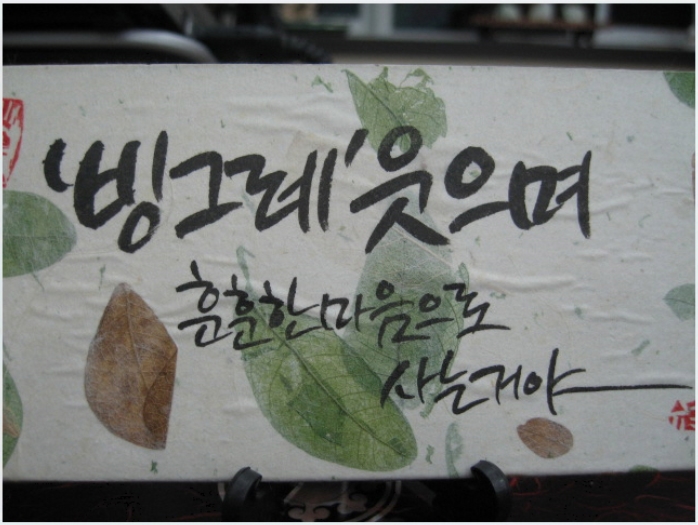 '빙그레' 웃으며
훈훈한 마음으로
사는거야